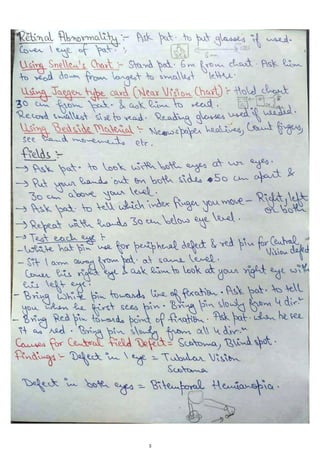 Retinal Abnormality :- Ask pat. to put glasses if used.
Cover 1 eye of pat. :
6m
Using Snellen's Chart :- Stand pat. 6m from chart. Ask him
to read down from largest to smallest letter.
Using Jaeger type card (Near Vision chart) :- Hold chart
30 cm from pat. & ask him to read.
Record smallest size to read. Reading glasses used if needed.
Using Bedside Material :- Newspaper healines, Count fingers,
see hand movements etc.
Fields :-
→ Ask pat. to look with both eyes at ur eyes.
→ Put your hands out on both sides 50 cm apart &
30 cm above your level.
→ Ask pat to tell which index finger you move - Right, left
or both
→ Repeat with hands 30 cm below eye level.
→ Test each eye :-
- White hat pin use for peripheral defect & red pin for Central
Vision defect
- Sit 1 arm away from pat. at same level.
Cover his right eye & ask him to look at your right eye with
his left eye.
- Bring White pin towards line of fixation. Ask pat. to tell
you when he first sees pin. Bring pin slowly from 4 dir.
- Bring Red pin towards point of fixation. Ask pat when he see
it as red. Bring pin slowly from all 4 dir.
Causes for Central Field Defect = Scotoma, Blind spot.
Findings :- Defect in 1 eye = Tubular Vision
Scotoma
Defect in both eyes = Bitemporal Hemianopia.
5